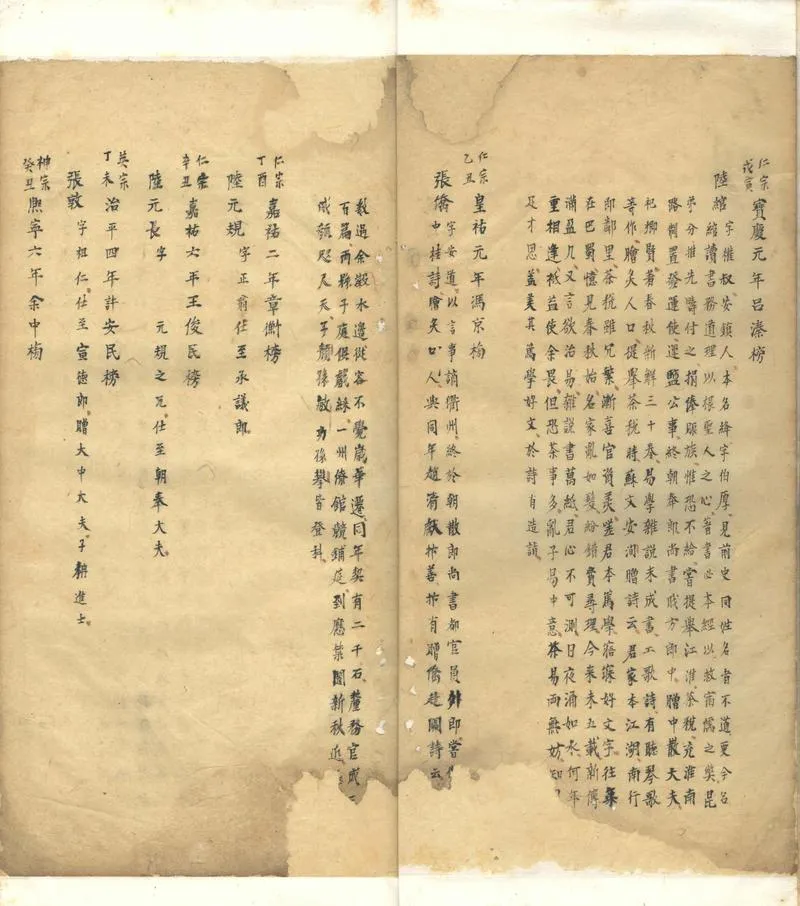 仁宗戊寅 寶慶元年呂溱榜
陸綰 字權叔安鎮人本名絳字伯厚見前史同姓名者不道更今名
綰讀書務道理以探聖人之心著書必本經以救甯儒之獘昆
弟分推先疇付之捐俸賑族惟恐不給嘗提舉江淮茶稅充淮南
路制置發運使運鹽公事終朝奉郎尚書職方郎中贈中散大夫
祀鄉賢著春秋新解三十卷易學雜說未成書工歌詩有聽琴歌
等作膾炙人口提舉茶稅時蘇文安洵贈詩云君家本江湖南行
即鄰里茶稅雖冗繁漸喜官資美嗟君本篤學寤寐好文字往年
在巴蜀憶見春秋始名家亂如髮紛錯費尋理今來未五載新傳
滿盈几又言欲治易雜說書萬紙君心不可測日夜湧如水何年
重相逢祗益使余畏但恐茶事多亂子易中意茶易兩無妨知
足才思蓋美其篤學好文於詩有造詣
仁宗乙丑 皇祐元年馮京榜
張僑 字安道以言事謫衢州終於朝散郎尚書都官員外郎嘗
中桂詩膾炙口人與同年趙清獻抃善抃有贈僑建園詩云
數過余谿水邊從容不覺歲華遷同年契有二千石釐務官成
百篇兩縣子庭俱戲綵一州僚館競鋪筵到應禁園新秋近
咫尺天子顏孫敏功孫攀皆登科
仁宗丁酉 嘉祐二年章衡榜
陸元規 字正翁仕至承議郎
仁宗辛丑 嘉祐六年王俊民榜
陸元長 字 元規之兄仕至朝奉大夫
英宗丁未 治平四年許安民榜
張敦 字祖仁仕至宣德郎贈大中大夫子耕進士
神宗癸丑 熙寧六年余中榜